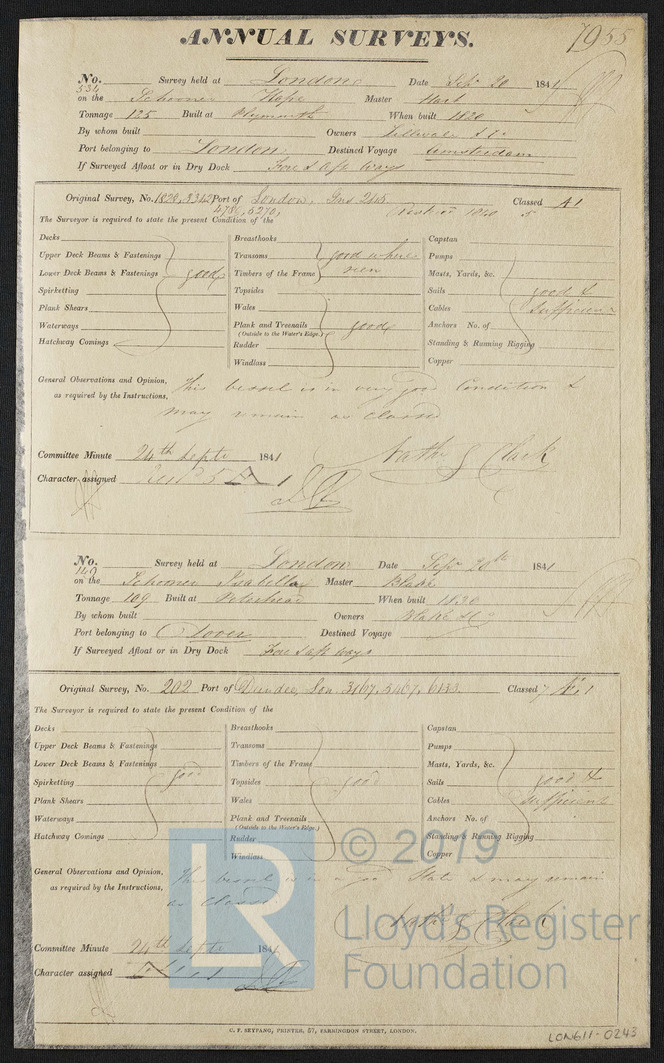 ANNUAL SURVEYS. 7955
No. 534 Survey held at London Date Sepr 20 1841
on the Schooner Hope Master Hart
Tonnage 125 Built at Plymouth When built 1820
By whom built Owners
Port belonging to London Destined Voyage Amsterdam
If Surveyed Afloat or in Dry Dock Fore & Aft Ways
Original Survey, No. Port of London, Classed A1
The Surveyor is required to state the present Condition of the
Decks Breasthooks Capstan
Upper Deck Beams & Fastenings Transoms good where Pumps
Lower Deck Beams & Fastenings good Timbers of the Frame seen Masts, Yards, &c.
Spirketting Topsides Sails good &
Plank Shears Wales Cables Sufficient
Waterways Plank and Treenails good Anchors No. of
(Outside to the Water's Edge.)
Hatchway Comings Rudder Standing & Running Rigging
Windlass Copper
General Observations and Opinion, This vessel is in very good Condition &
as required by the Instructions, may remain as classed
Committee Minute 24th Septr 1841
Character assigned
No. 140 Survey held at London Date Sepr 20th 1841
on the Schooner Isabella Master Blake
Tonnage 109 Built at Peterhead When built 1830
By whom built Owners Blake & Co
Port belonging to Dover Destined Voyage
If Surveyed Afloat or in Dry Dock Fore & aft ways
Original Survey, No. 202 Port of Dundee, Lon. 3167, 5467, 6133 Classed
The Surveyor is required to state the present Condition of the
Decks Breasthooks Capstan
Upper Deck Beams & Fastenings Transoms Pumps
Lower Deck Beams & Fastenings Timbers of the Frame Masts, Yards, &c.
Spirketting good Topsides good Sails good &
Plank Shears Wales Cables Sufficient
Waterways Plank and Treenails Anchors No. of
(Outside to the Water's Edge.)
Hatchway Comings Rudder Standing & Running Rigging
Windlass Copper
General Observations and Opinion, This vessel is in a good State & may remain
as required by the Instructions, as classed
Committee Minute 24th Septr 1841
Character assigned
C. F. SEYFANG, PRINTER, 57, FARRINGDON STREET, LONDON.
LON611-0243
LR
© 2019
Lloyd's Register
Foundation